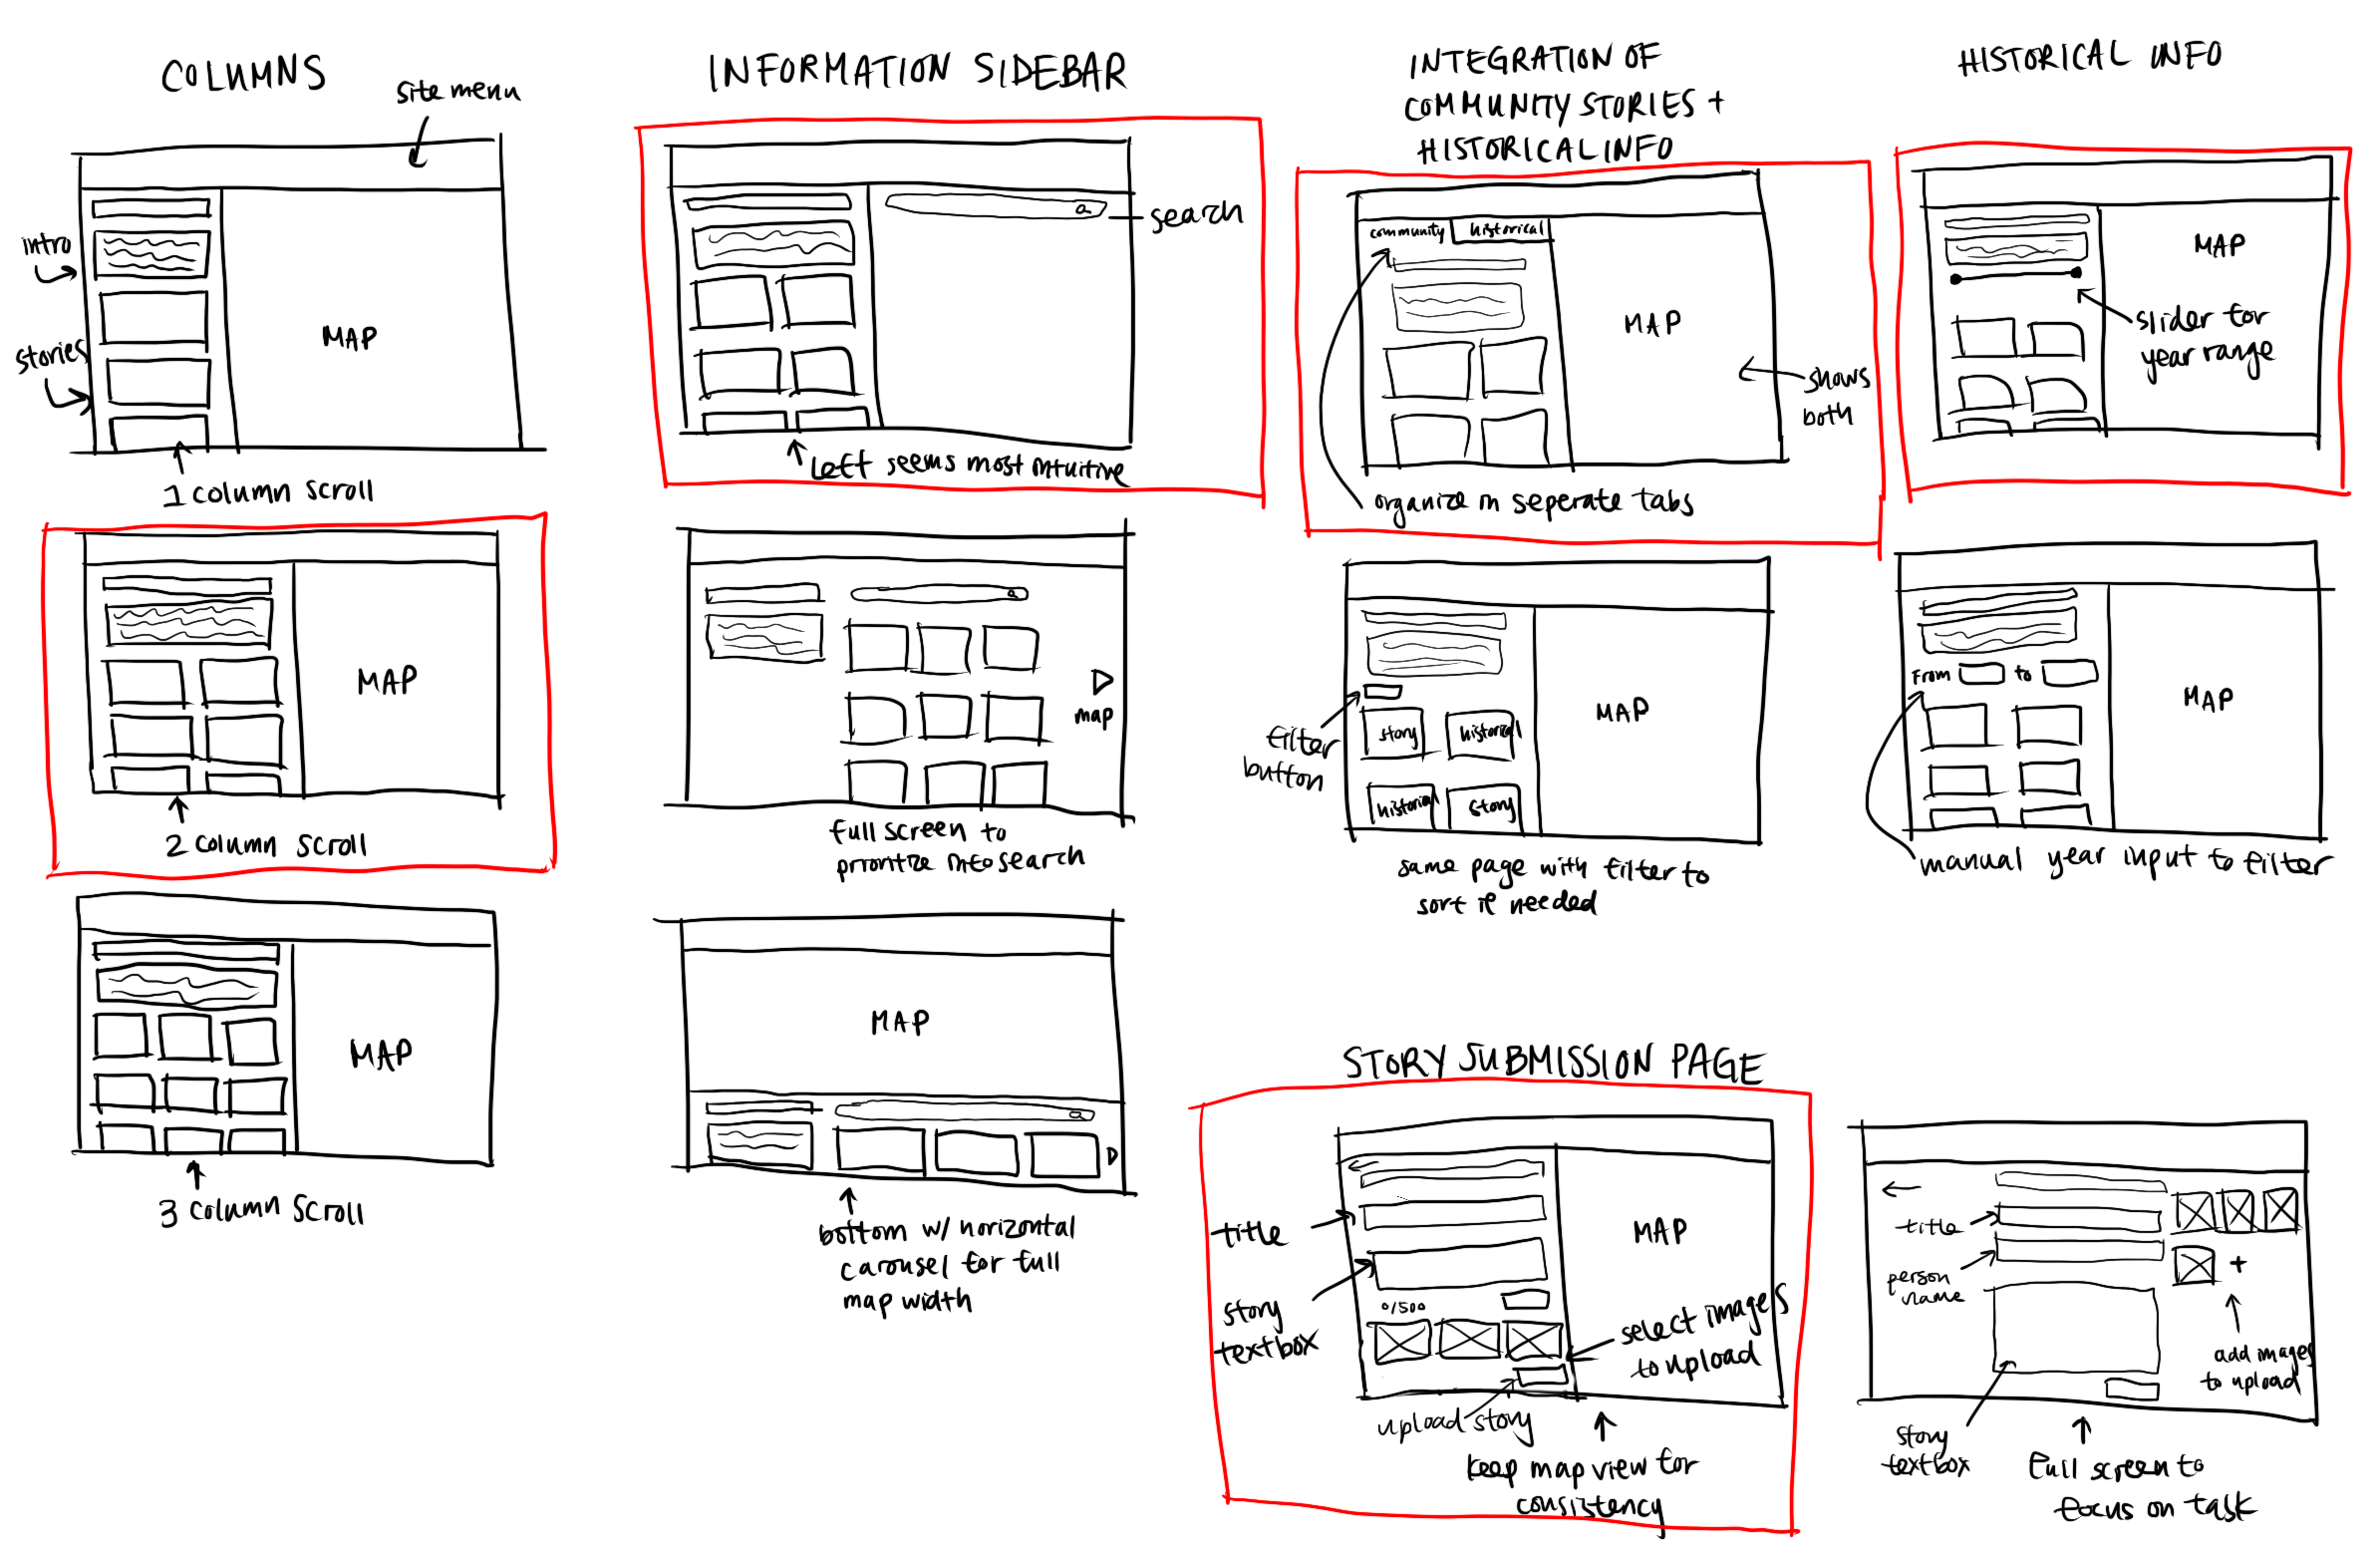 COLUMNS
site menu
intro
stories
MAP
1 column scroll
MAP
2 column scroll
MAP
3 column scroll
INFORMATION SIDEBAR
search
Left seems most intuitive
map
full screen to
prioritize info search
MAP
bottom w/ horizontal
carousel for full
map width
INTEGRATION OF
COMMUNITY STORIES +
HISTORICAL INFO
community
historical
MAP
shows
both
organize in seperate tabs
MAP
filter
button
story
historical
historical
story
same page with filter to
sort if needed
HISTORICAL INFO
MAP
slider for
year range
From
to
MAP
manual year input to filter
STORY SUBMISSION PAGE
title
MAP
story
textbox
0/500
select images
to upload
upload story
keep map view for
consistency
title
person
name
+
add images
to upload
story
textbox
full screen to
focus on task